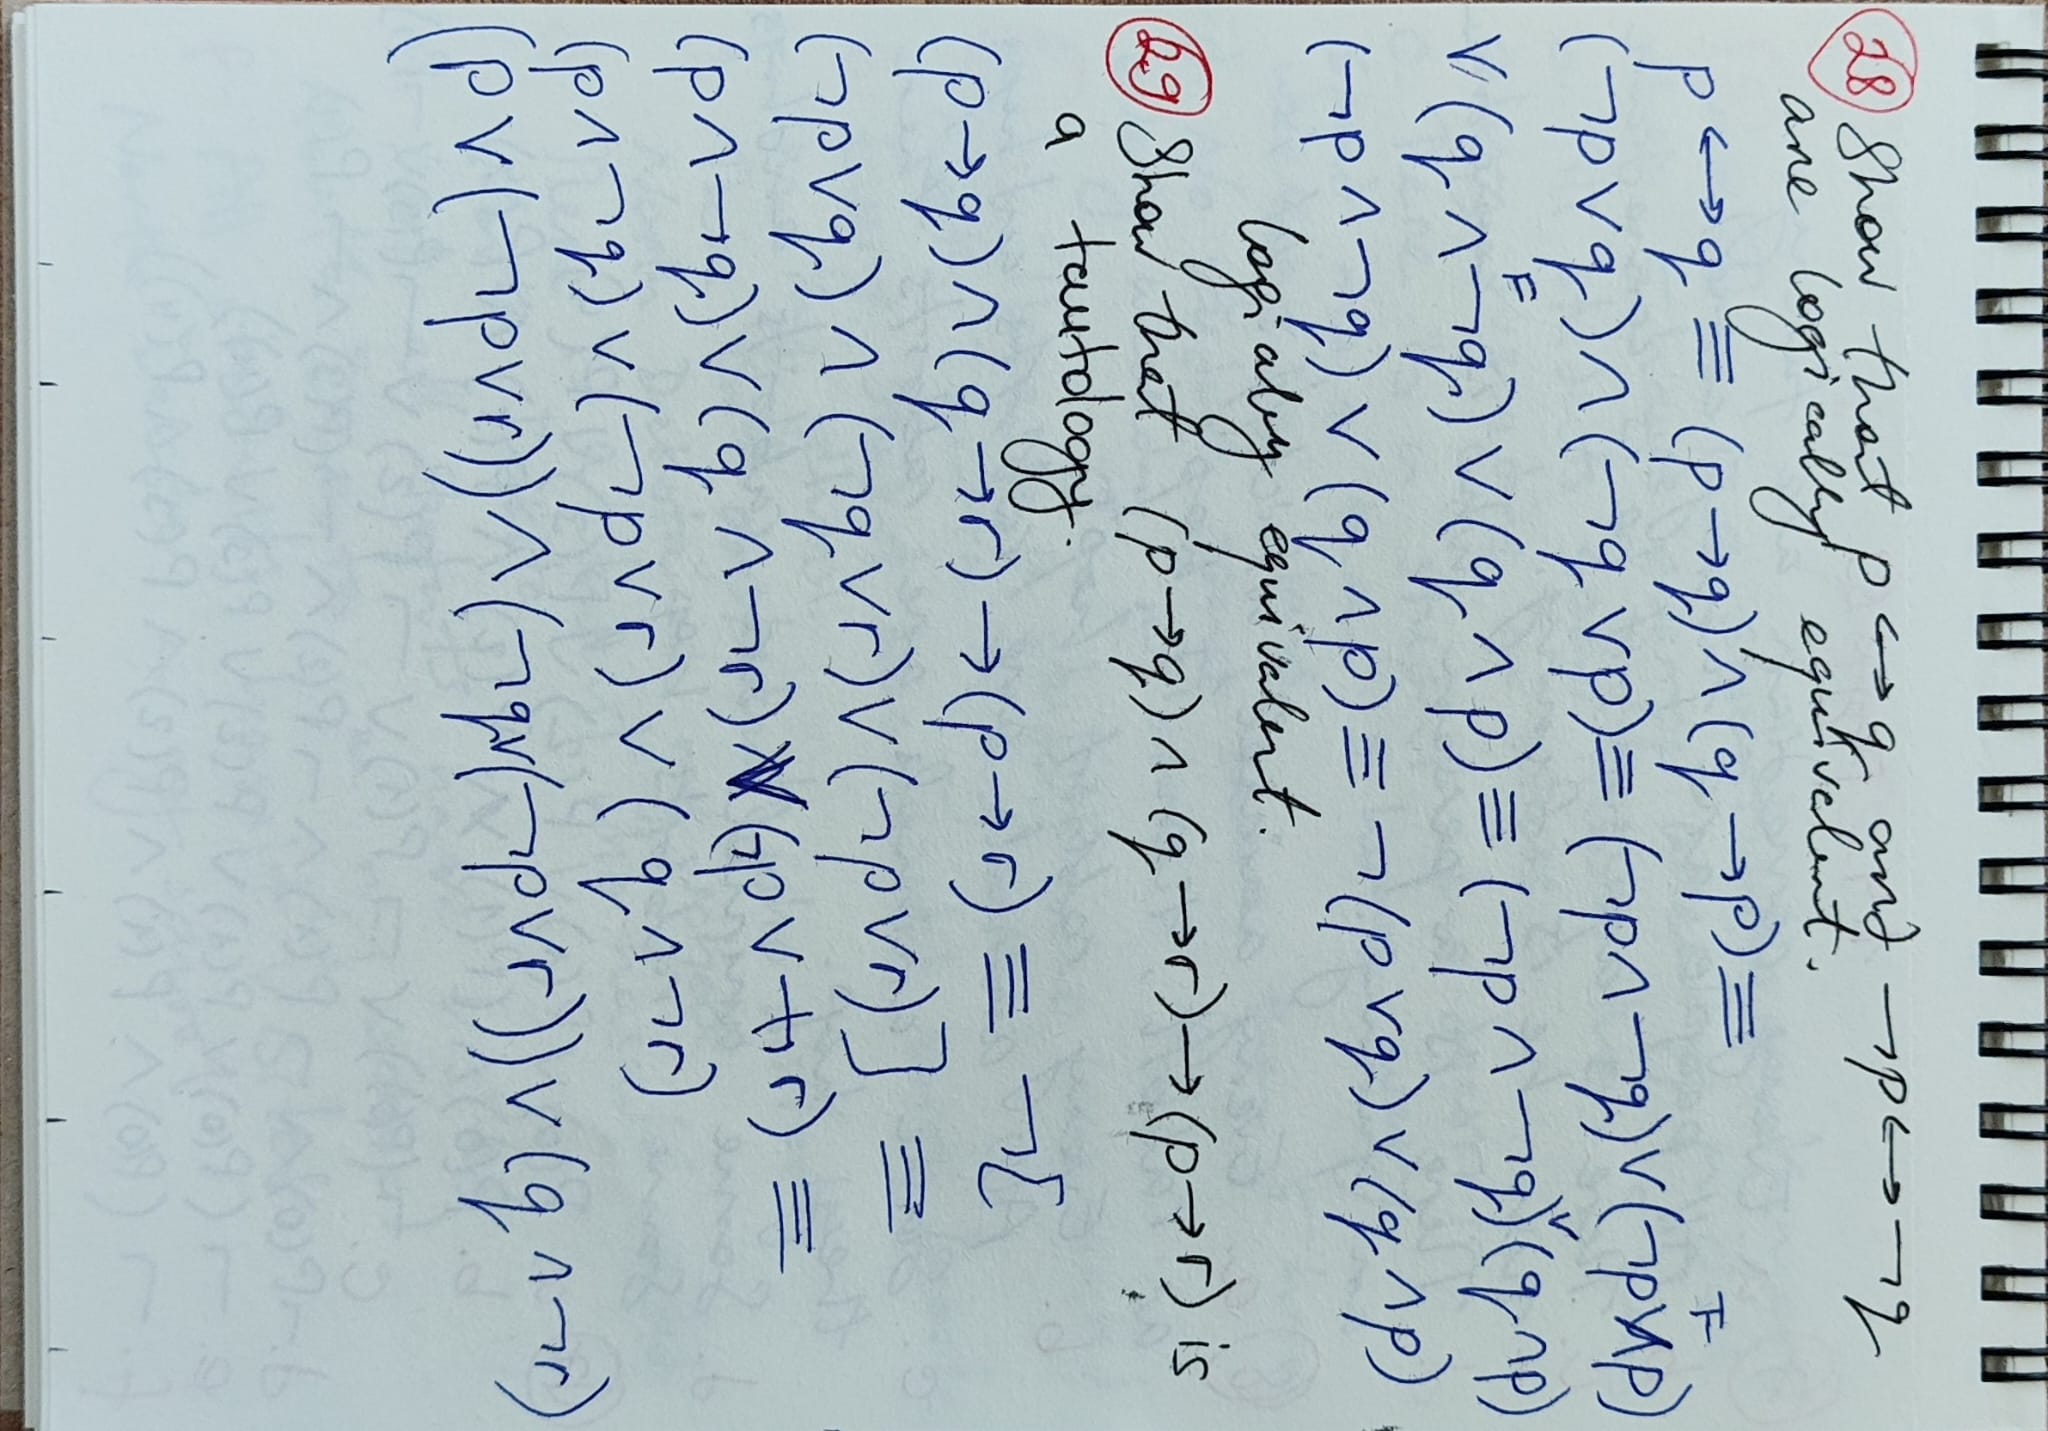 28 Show that p ↔ q and ¬p ↔ ¬q
are logically equivalent.
p ↔ q ≡ (p → q) ∧ (q → p) ≡
(¬p ∨ q) ∧ (¬q ∨ p) ≡ (¬p ∧ ¬q) ∨ (¬p ∧ p)
∨ (q ∧ ¬q) ∨ (q ∧ p) ≡ (¬p ∧ ¬q) ∨ (p ∧ q)
(¬p ∧ ¬q) ∨ (q ∧ p) ≡ ¬(p ∨ q) ∨ (q ∧ p)
logically equivalent.
29 Show that (p → q) ∧ (q → r) → (p → r) is
a tautology.
(p → q) ∧ (q → r) → (p → r) ≡ ¬[
(¬p ∨ q) ∧ (¬q ∨ r) ∨ (¬p ∨ r)] ≡
(p ∧ ¬q) ∨ (q ∧ ¬r) ∨ (¬p ∨ r) ≡
(p ∧ ¬q) ∨ (¬p ∨ r) ∨ (q ∧ ¬r)
((p ∨ (¬p ∨ r)) ∧ (¬q ∨ (¬p ∨ r)) ∨ (q ∧ ¬r)